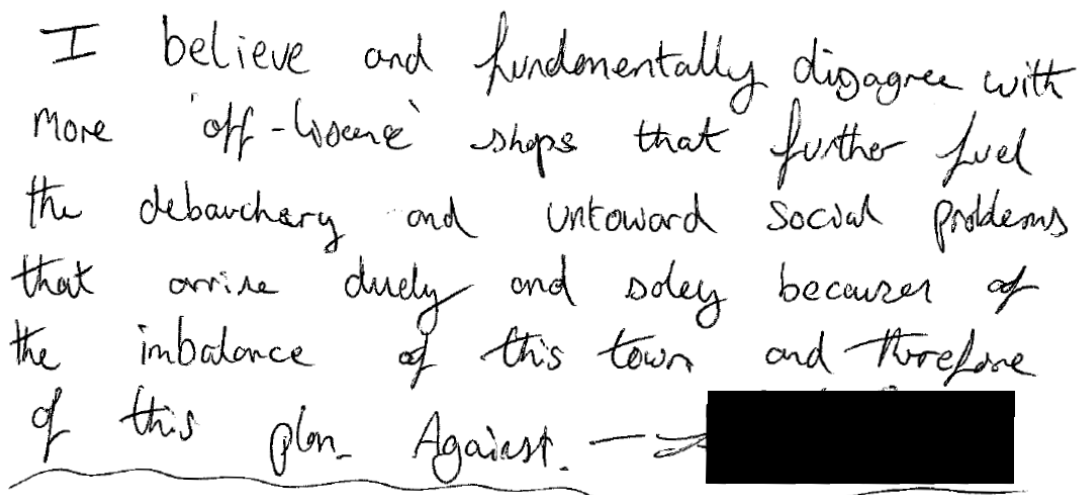 I believe and fundementally disagree with
more 'off-lisence' shops that further fuel
the debauchery and untoward social problems
that arrise duely and soley because of
the imbalance of this town and therefore
of this plan. Against.